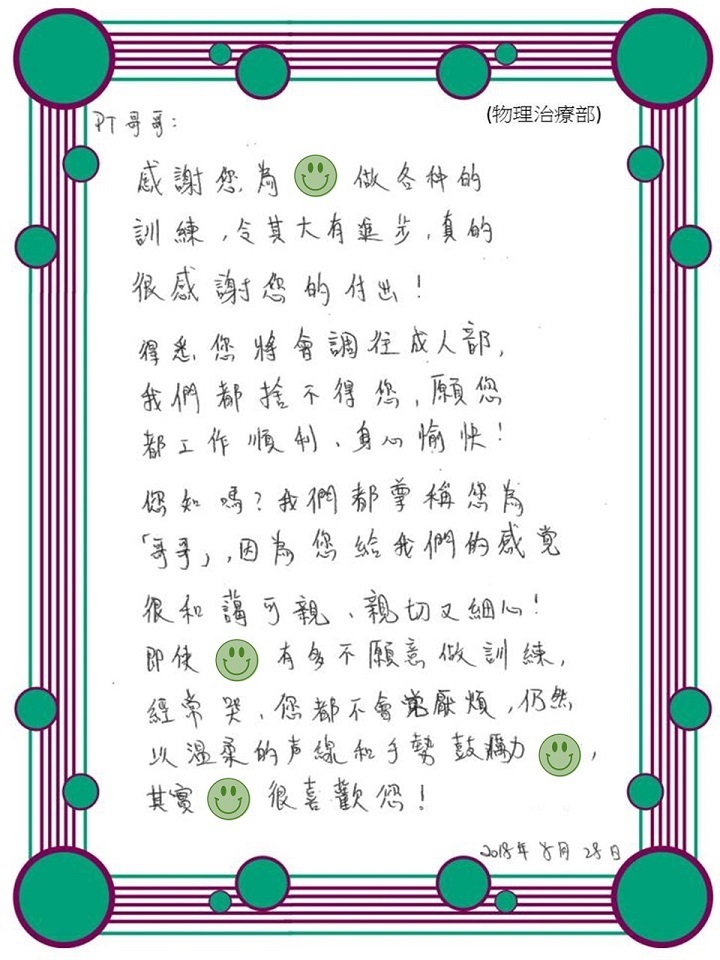 (物理治療部)
PT 哥哥：
感謝您為 做各种的
訓練，令其大有進步，真的
很感謝您的付出！
得悉您將會調往成人部，
我們都捨不得您，願您
都工作順利、身心愉快！
您知嗎？我們都尊稱您為
「哥哥」，因為您給我們的感覚
很和藹可親、親切又細心！
即使 有多不願意做訓練，
經常哭、您都不會覚厭煩，仍然
以溫柔的声線和手勢鼓勵 ，
其實 很喜歡您！
2018年8月28日